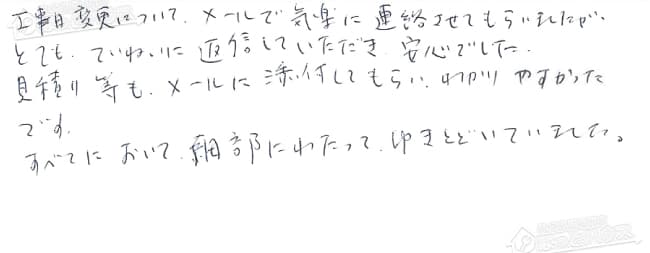 工事日変更について、メールで気楽に連絡させてもらいましたが、
とても、ていねいに返信していただき安心でした。
見積り等も、メールに添付してもらい、わかりやすかった
です。
すべてにおいて、細部にわたって、ゆきとどいていました。